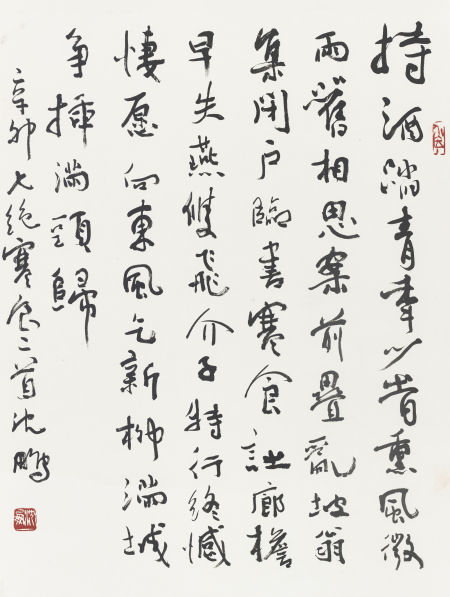 持酒踏青年少旹熏風微
雨舊相思案前疊亂坡翁
集閉户臨書寒食詩廊檐
早失燕雙飛介子特行終憾
悽愿向東風乞新柳滿城
争插滿頭歸
辛卯七絶寒食二首沈鵬